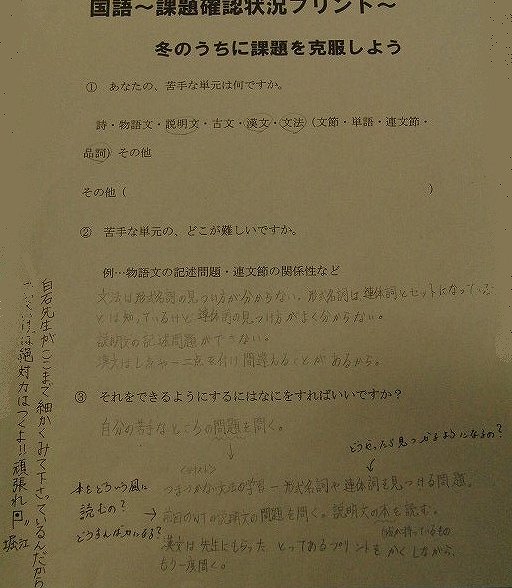 国語～課題確認状況プリント～
冬のうちに課題を克服しよう
① あなたの、苦手な単元は何ですか。
詩・物語文・説明文・古文・漢文・文法（文節・単語・連文節・
品詞）その他
その他（ ）
② 苦手な単元の、どこが難しいですか。
例…物語文の記述問題・連文節の関係性など
文法は形式名詞の見つけ方が分からない。形式名詞は連体詞とセットになっている
とは知っているけど連体詞の見つけ方がよく分からない。
説明文の記述問題ができない。
漢文はレ点や一二点を付け間違えることがあるから。
③ それをできるようにするにはなにをすればいいですか？
自分の苦手なところの問題を聞く。
↓
どうやったら見つかるようになるの？
文法の学習－形式名詞や連体詞を見つける問題。
本をどういう風に
読むの？
→
説明文の問題を聞く。説明文の本を読む。
漢文は先生にもらった とってあるプリントを かくしながら、
もう一度聞く。
白石先生がここまで細かくみて下さっているんだから
絶対力はつくよ!!頑張れ
堀江